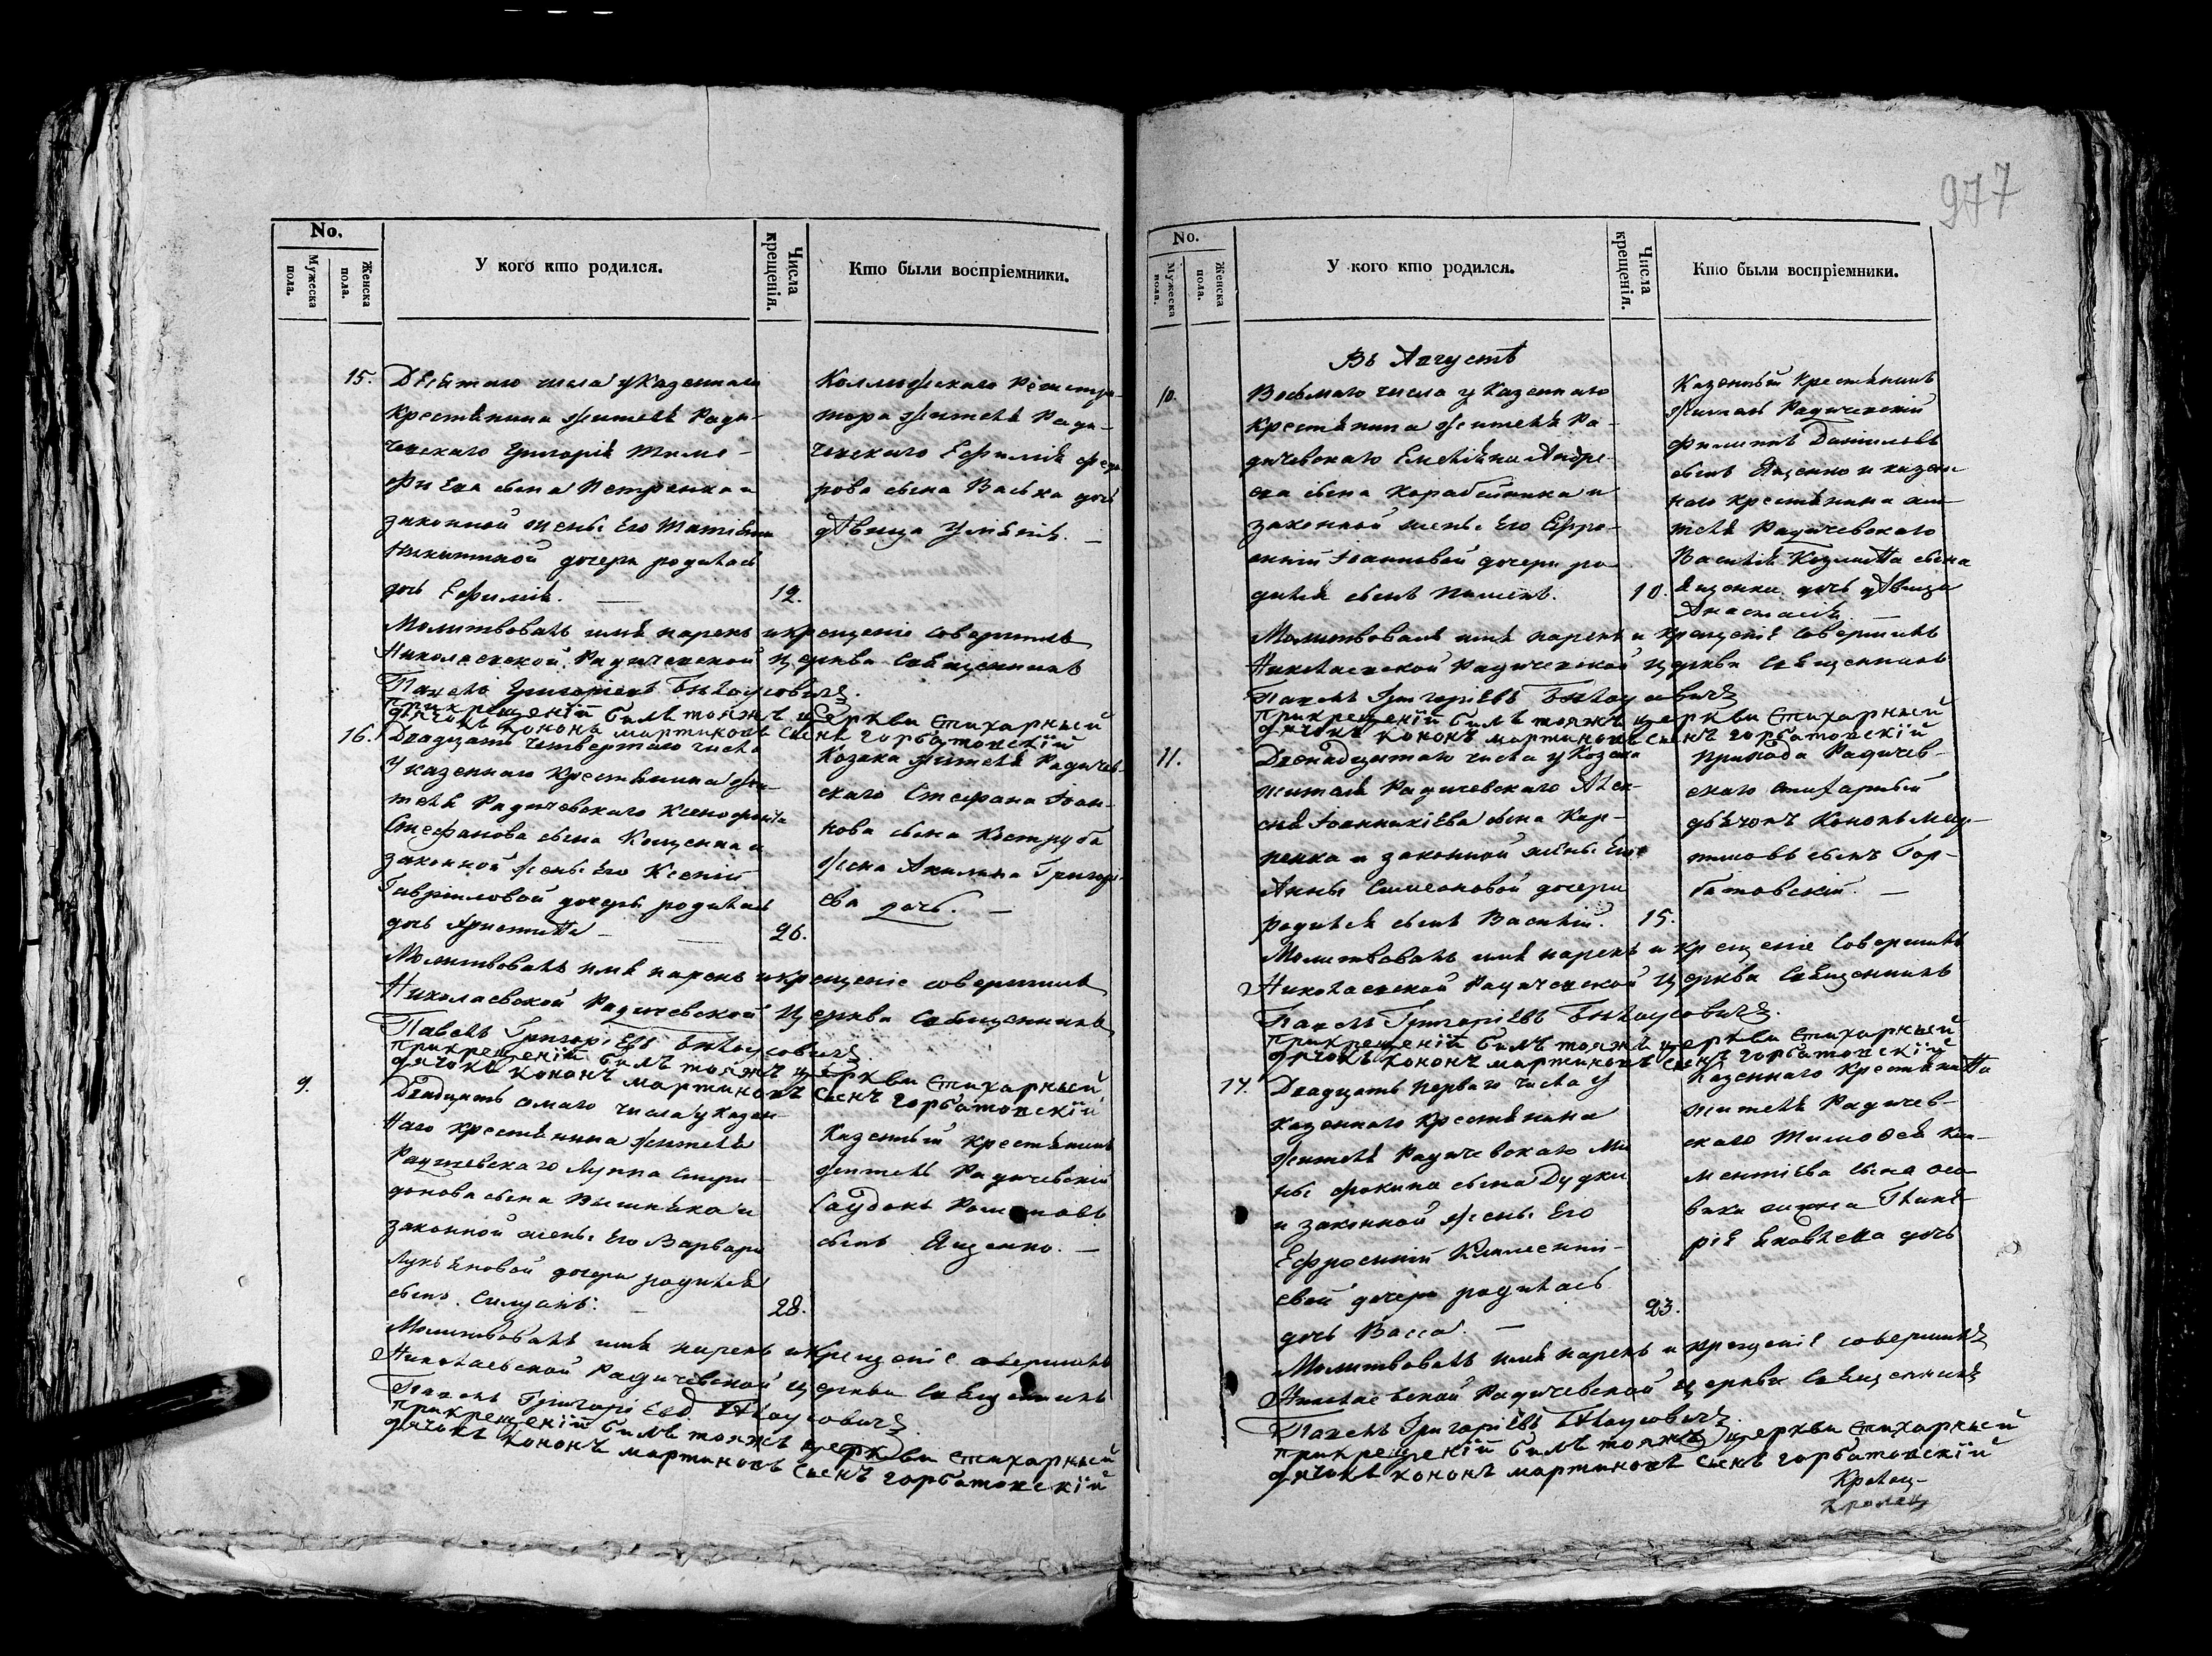 No.
Мужеска пола.
Женска пола.
У кого кто родился.
Числа крещенія.
Кто были воспріемники.
15.
Девятаго числа у Казеннаго
Крестянина жителя Ради-
чевскаго Григорія Тимо-
фиева сына Петренка и
законной жены его Татіяны
Никитиной дочери родилась
дочь Ефимія.
12.
Коллежскаго Регистра-
тора жителя Ради-
чевскаго Ефимія Федо-
рова сына Васька дочь
дѣвица Уліянія.
Молитвовалъ имя нарекъ и крещеніе совершилъ
Николаевской Радичевской церкви Священникъ
Павелъ Григоріевъ Бѣлоусовичъ.
При крещеніи билъ тояжъ церкви стихарный
дячокъ Кононъ Мартиновъ сынъ Горбатовскій
16.
Двадцать четвертаго числа
у казеннаго Крестянина жи-
теля Радичевскаго Ксенофонта
Стефанова сына Кощенка и
законной жены его Ксеніи
Гавриловой дочери родилась
дочь Христина
26.
Козака жителя Радичев-
скаго Стефана Іоан-
нова сына Коструба
жена Акилина Григорі-
ева дочь.
Молитвовалъ имя нарекъ и крещеніе совершилъ
Николаевской Радичевской церкви Священникъ
Павелъ Григоріевъ Бѣлоусовичъ
При крещеніи билъ тояжъ церкви стихарный
дячокъ Кононъ Мартиновъ сынъ Горбатовскій
9.
Двадцать семаго числа у казен-
наго крестянина жителя
Радичевскаго Луппа Спири-
донова сына Вишняка и
законной жены его Варвары
Лукяновой дочери родился
сынъ Силуанъ.
28.
Казенный крестянинъ
житель Радичевскій
Романовъ
сынъ Яценко.
Молитвовалъ имя нарекъ и крещеніе совершилъ
Николаевской Радичевской церкви Священникъ
Павелъ Григоріевъ Бѣлоусовичъ
При крещеніи билъ тояжъ церкви стихарный
дячокъ Кононъ Мартиновъ сынъ Горбатовскій
977
No.
Мужеска пола.
Женска пола.
У кого кто родился.
Числа крещенія.
Кто были воспріемники.
Въ Августѣ
10.
Восьмаго числа у Казеннаго
Крестянина жителя Ра-
дичевскаго Емеліяна Андре-
ева сына Карабейника и
законной жены его Ефро-
синіи Іоанновой дочери ро-
дился сынъ Пименъ.
10.
Казенный Крестянинъ
житель Радичевскій
Филиппъ Даниловъ
сынъ Яценко и казен-
наго крестянина жи-
теля Радичевскаго
Василія Козмина сына
Яценка дочь дѣвица
Анастасія
Молитвовалъ имя нарекъ и крещеніе совершилъ
Николаевской Радичевской церкви Священникъ
Павелъ Григоріевъ Бѣлоусовичъ
При крещеніи билъ тояжъ церкви стихарный
дячокъ Кононъ Мартиновъ сынъ Горбатовскій
11.
Двенадцатаго числа у Козака
жителя Радичевскаго Алек-
сѣя Іоанникіева сына Кар-
пенка и законной жены его
Анны Симеоновой дочери
родился сынъ Василій.
15.
Прихода Радичев-
скаго стихарный
дьячокъ Кононъ Мар-
тиновъ сынъ Гор-
батовскій.
Молитвовалъ имя нарекъ и крещеніе совершилъ
Николаевской Радичевской церкви Священникъ
Павелъ Григоріевъ Бѣлоусовичъ.
При крещеніи билъ тояжъ церкви стихарный
дячокъ Кононъ Мартиновъ сынъ Горбатовскій
17.
Двадцать перваго числа у
казеннаго крестянина
жителя Радичевскаго Ми-
ны Фокина сына Дудки
и законной жены его
Ефросиніи Климентіи-
евой дочери родилась
дочь Васса.
23.
Казеннаго Крестянина
жителя Радичев-
скаго Тимофея Кли-
ментіева сына
жена Гликѣ-
рія Яковлева дочь
Молитвовалъ имя нарекъ и крещеніе совершилъ
Николаевской Радичевской церкви Священникъ
Павелъ Григоріевъ Бѣлоусовичъ.
При крещеніи билъ тояжъ церкви стихарный
дячокъ Кононъ Мартиновъ сынъ Горбатовскій